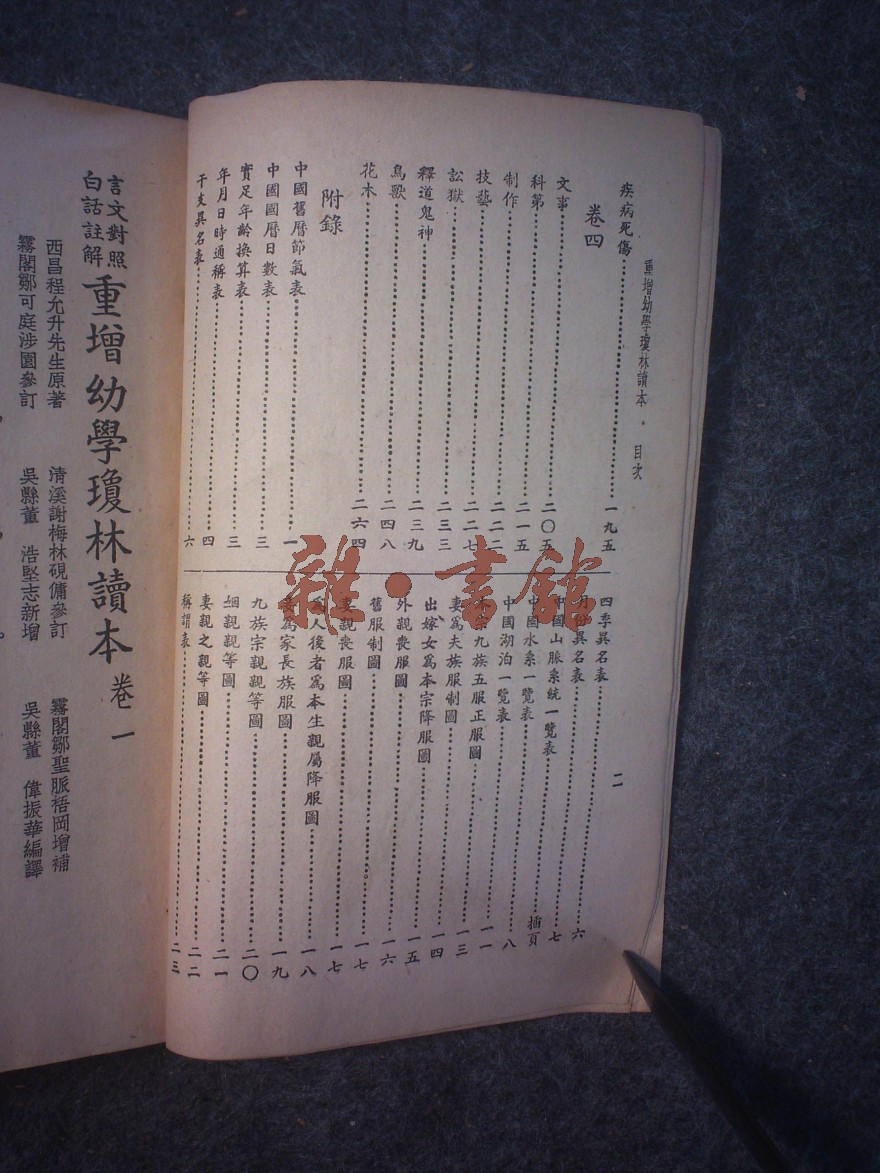 重增幼學瓊林讀本 · 目次
二
疾病死傷 一九五
卷四
文事 二〇五
科第 二一五
制作 二二二
技藝 二二七
訟獄 二三三
釋道鬼神 二三九
鳥獸 二四八
花木 二六四
附錄
中國舊曆節氣表 一
中國國曆日數表 三
實足年齡換算表 三
年月日時通稱表 四
干支異名表 六
四季異名表 六
月份異名表 七
中國山脈系統一覽表 插頁
中國水系一覽表 八
中國湖泊一覽表 一一
本宗九族五服正服圖 一三
妻為夫族服制圖 一四
出嫁女為本宗降服圖 一五
外親喪服圖 一六
舊服制圖 一七
妻親喪服圖 一七
為人後者為本生親屬降服圖 一八
妾為家長族服圖 一九
九族宗親親等圖 二〇
姻親親等圖 二一
妻親之親等圖 二二
稱謂表 二三
雜·書館
言文對照
白話註解
重增幼學瓊林讀本 卷一
西昌程允升先生原著
清溪謝梅林硯傭參訂
霧閣鄒聖脈梧岡增補
霧閣鄒可庭涉園參訂
吳縣董 浩堅志新增
吳縣董 偉振華編譯